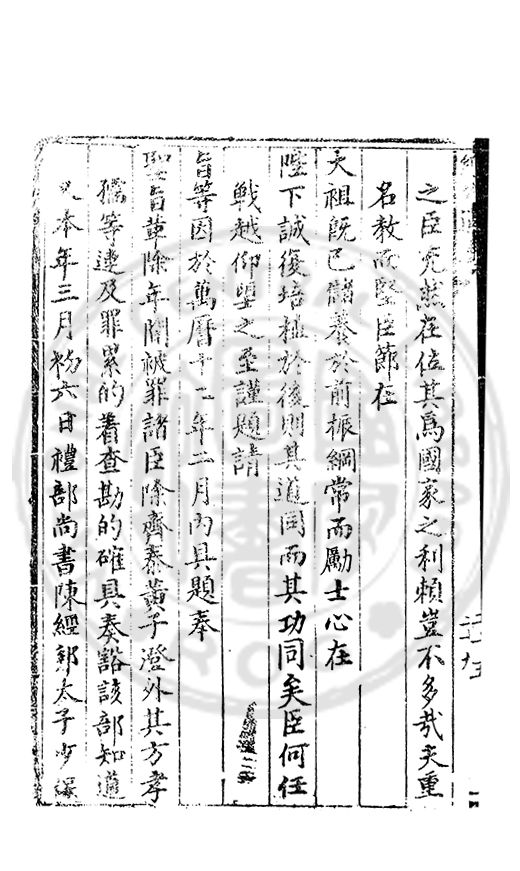 之臣宛然在位其為國家之利賴豈不多哉夫重
名教而堅臣節在
天祖既已儲養於前振綱常而勵士心在
陛下誠復培植於後則其道同而其功同矣臣何任
戰越仰望之至謹題請
旨等因於萬曆十二年二月內具題奉
聖旨革除年間被罪諸臣除齊泰黃子澄外其方孝
孺等連及罪累的著查勘的確具奏豁該部知道
本年三月初六日禮部尚書陳經郭太子少